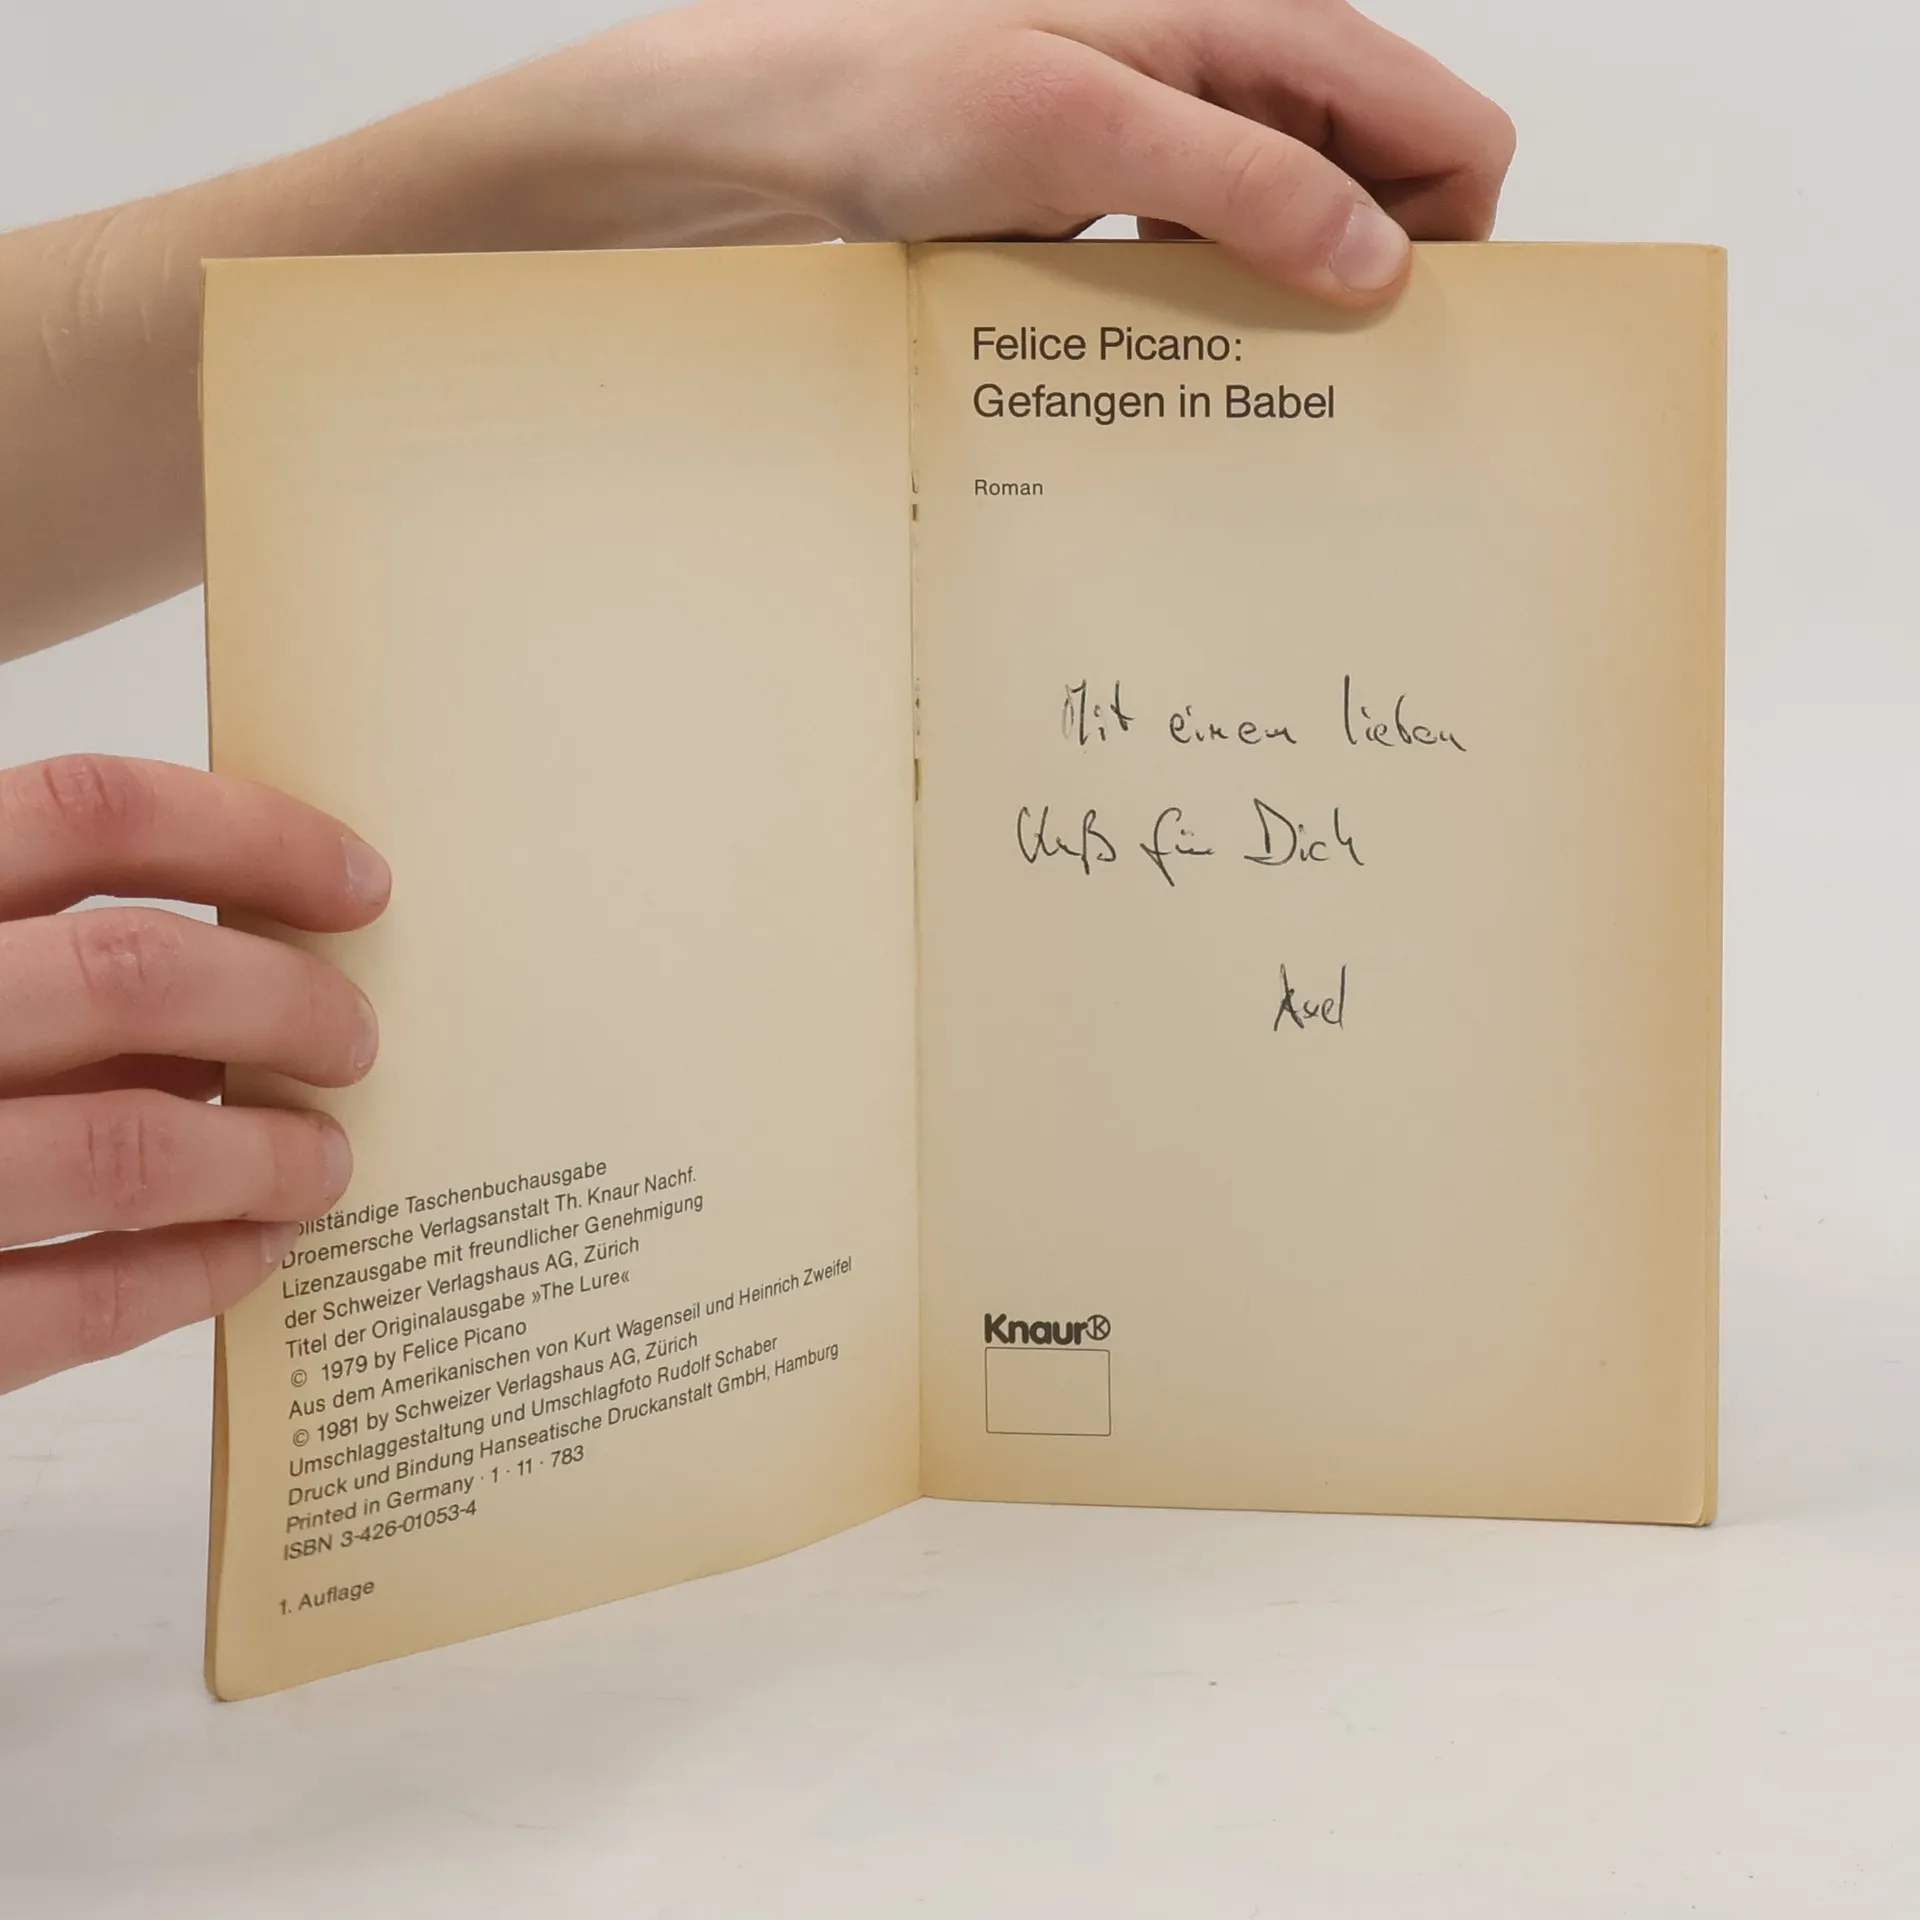 ollständige Taschenbuchausgabe
Droemersche Verlagsanstalt Th. Knaur Nachf.
Lizenzausgabe mit freundlicher Genehmigung
der Schweizer Verlagshaus AG, Zürich
Titel der Originalausgabe »The Lure«
© 1979 by Felice Picano
Aus dem Amerikanischen von Kurt Wagenseil und Heinrich Zweifel
© 1981 by Schweizer Verlagshaus AG, Zürich
Umschlaggestaltung und Umschlagfoto Rudolf Schaber
Druck und Bindung Hanseatische Druckanstalt GmbH, Hamburg
Printed in Germany · 1 · 11 · 783
ISBN 3-426-01053-4
1. Auflage
Felice Picano:
Gefangen in Babel
Roman
Mit einem lieben
Kuß für Dich
Axel
Knaur®